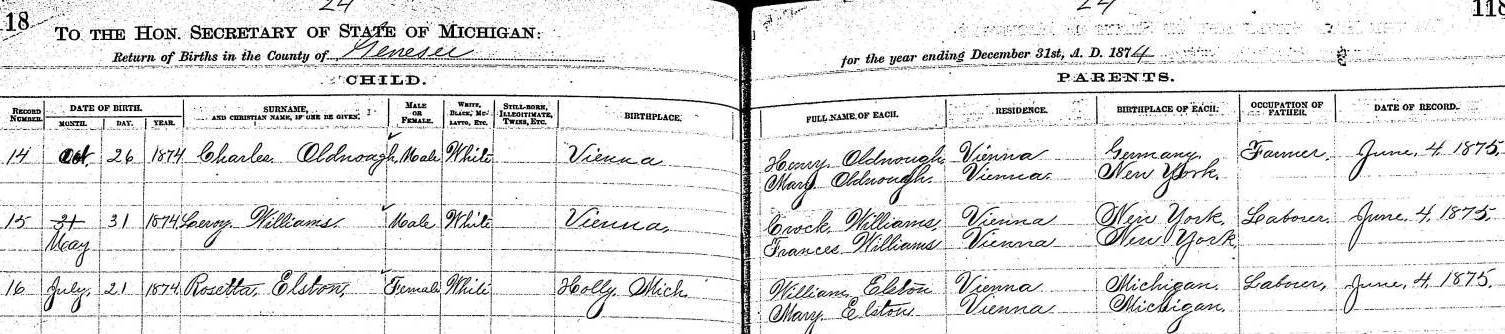 24 24
18 118
TO THE HON. SECRETARY OF STATE OF MICHIGAN:
Return of Births in the County of Genesee for the year ending December 31st, A. D. 1874
CHILD. PARENTS.
RECORD NUMBER. DATE OF BIRTH. MONTH. DAY. YEAR. SURNAME, AND CHRISTIAN NAME, IF ONE BE GIVEN. MALE OR FEMALE. WHITE, BLACK, MULATTO, ETC. STILL-BORN, ILLEGITIMATE, TWINS, ETC. BIRTHPLACE. FULL NAME OF EACH. RESIDENCE. BIRTHPLACE OF EACH. OCCUPATION OF FATHER. DATE OF RECORD.
14 Oct. 26 1874 Charles Oldnough Male White Vienna Henry Oldnough Vienna Germany. Farmer. June, 4, 1875.
Mary Oldnough. Vienna. New York.
15 31 31 1874 Leroy Williams. Male White Vienna. Crock Williams. Vienna New York. Laborer. June, 4, 1875.
May Frances Williams Vienna New York.
16 July. 21 1874 Rosetta Elston. Female White Holly Mich. William Elston Vienna Michigan. Laborer. June, 4, 1875.
Mary Elston. Vienna Michigan.